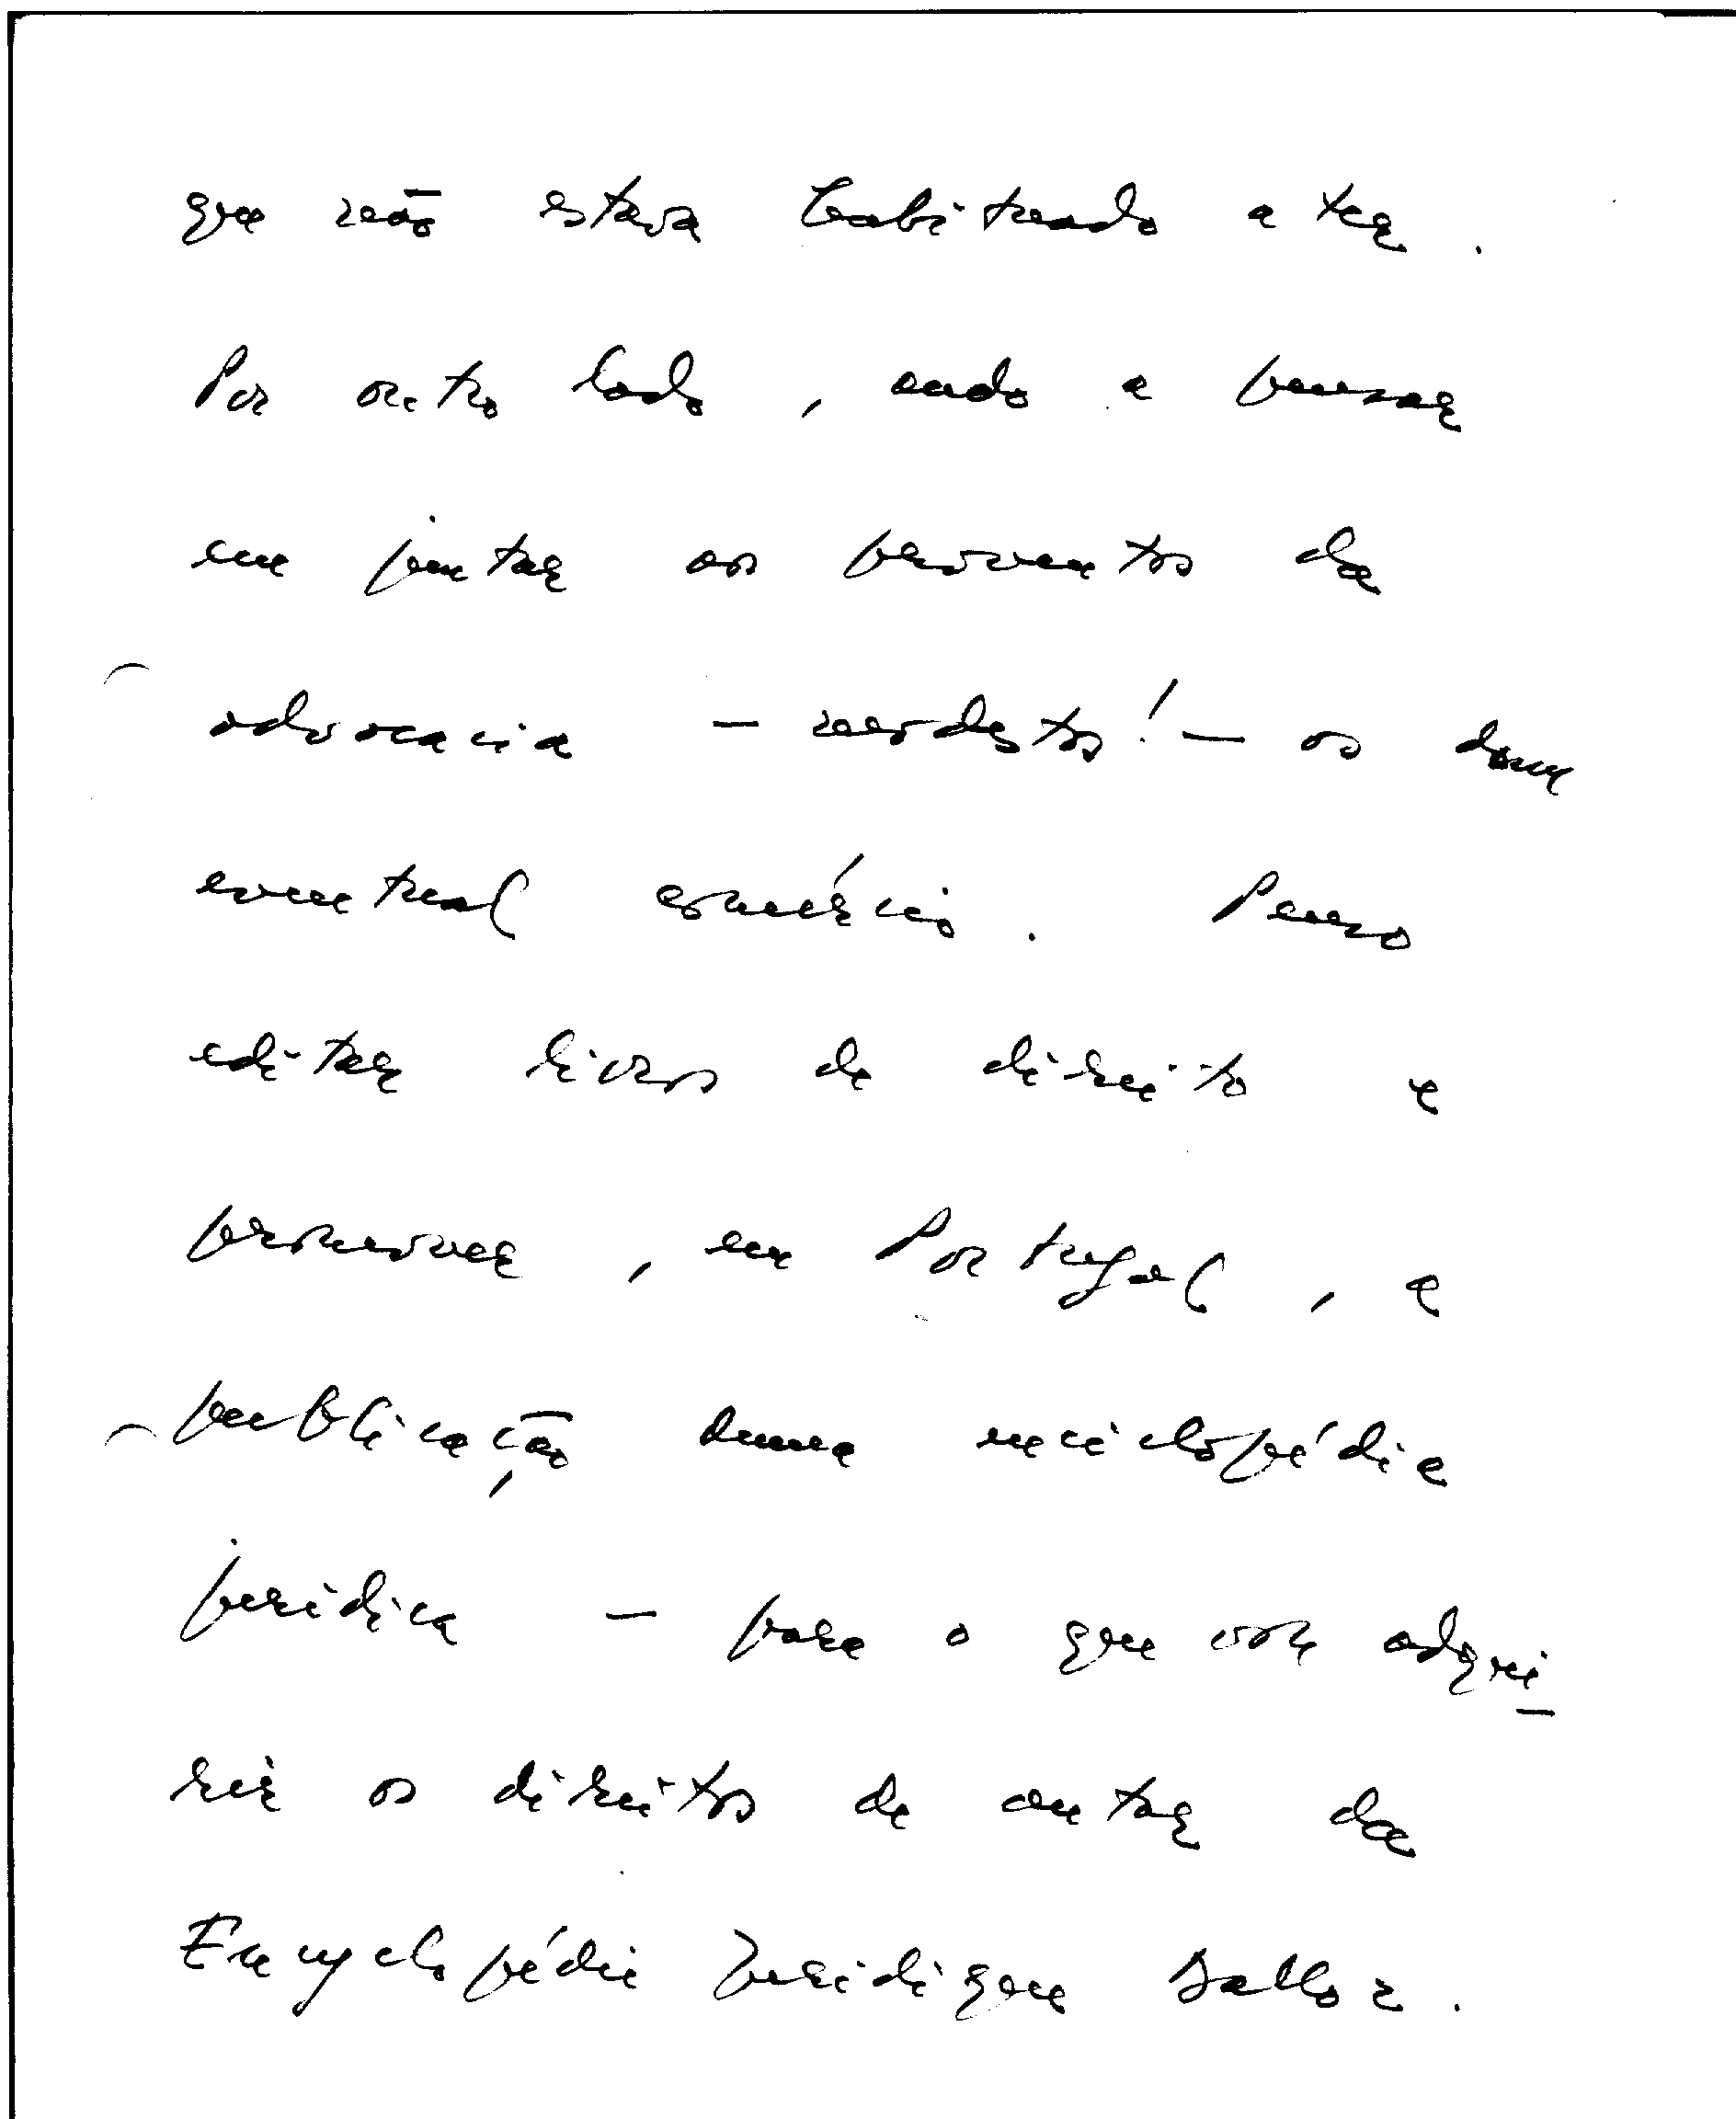 que não estava habituado a ter.
Por outro lado, ando a pensar
em juntar os proventos da
advocacia - modestos! - os dum
eventual comércio. Penso
editar livros de direito e
promover, em Portugal, a
publicação duma enciclopédia
juridica - para o que vou adqui-
rir os direitos de autor da
Encyclopédie Juridique Dalloz.